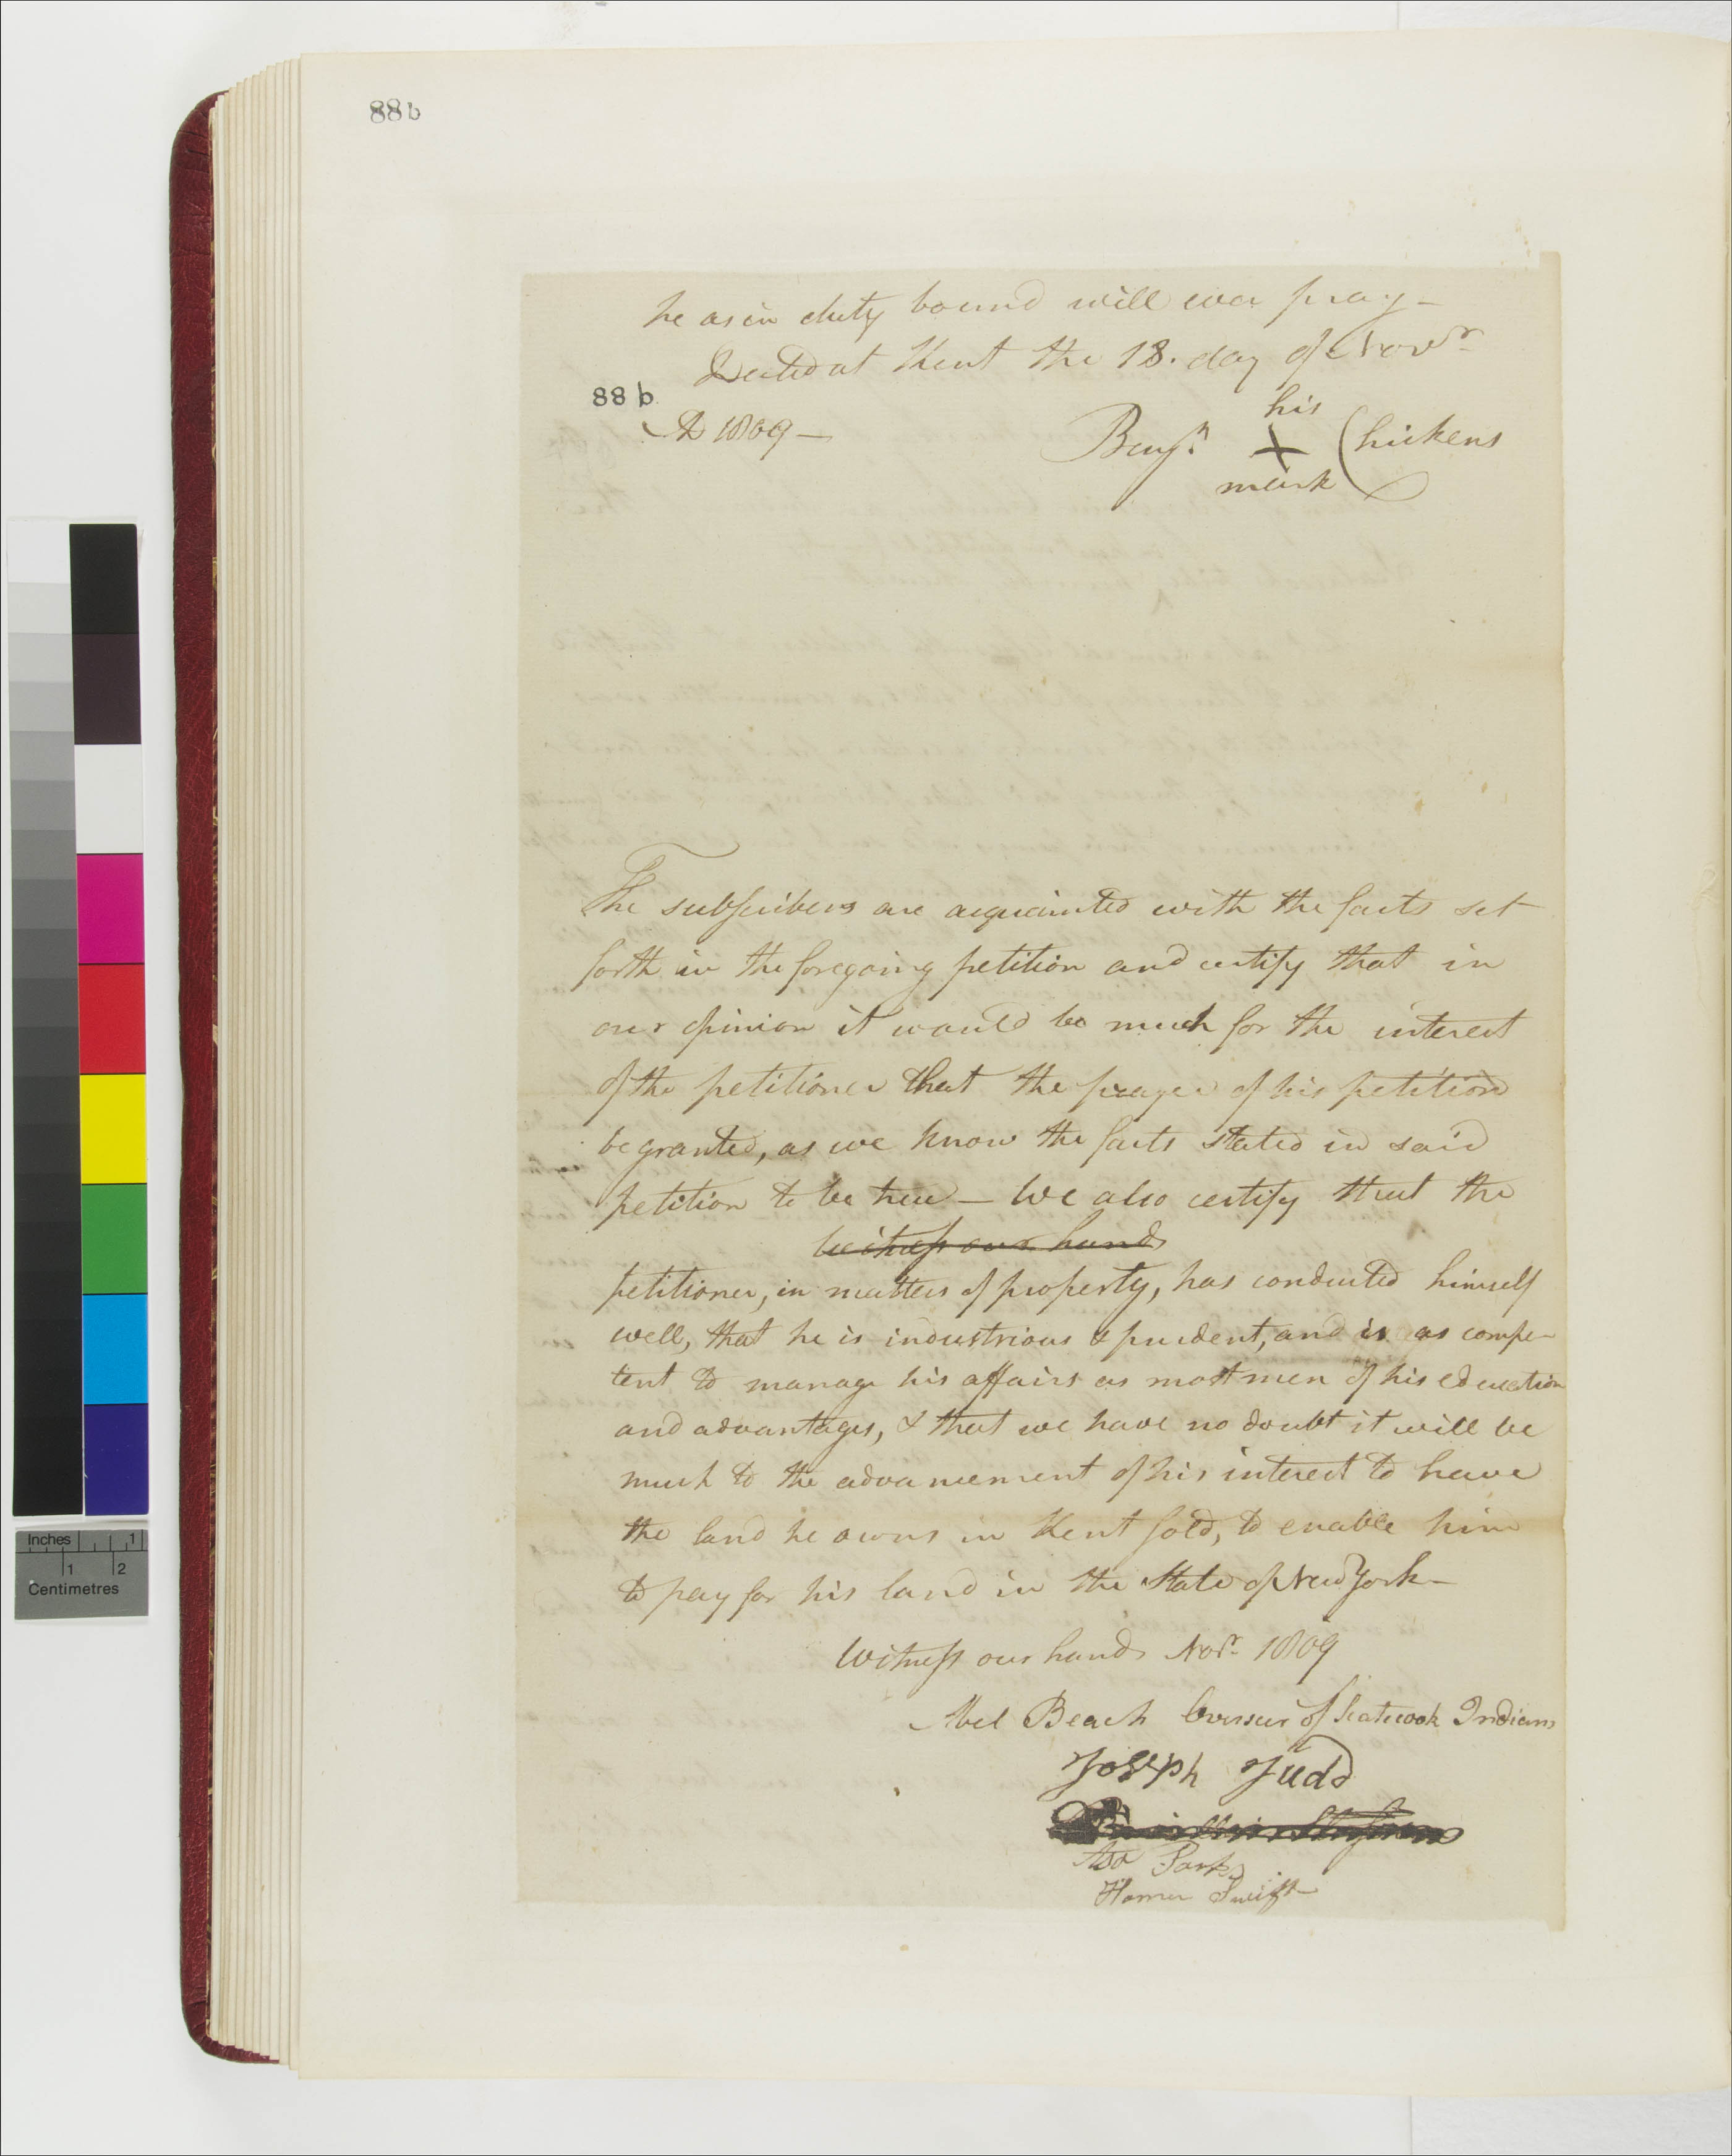 88b
he as in duty bound will ever pray —
Dated at Kent the 18. day of Novr
88 b
AD 1809 —
his
Benjn. X Chickens
mark
The subscribers are acquainted with the facts set
forth in the foregoing petition and certify that in
our opinion it would be much for the interest
of the petitioner that the prayer of his petition
be granted, as we know the facts stated in said
petition to be true — We also certify that the
Witness our hands
petitioner, in matters of property, has conducted himself
well, that he is industrious & prudent, and is as compe-
tent to manage his affairs as most men of his education
and advantages, & that we have no doubt it will be
much to the advancement of his interest to have
the land he owns in Kent sold, to enable him
to pay for his land in the State of New York —
Witness our hands Novr. 1809
Abel Beach Overseer of Scatecook Indians
Joseph Judd
Asa Parks
Homer Swift
Inches 1
1 2
Centimetres